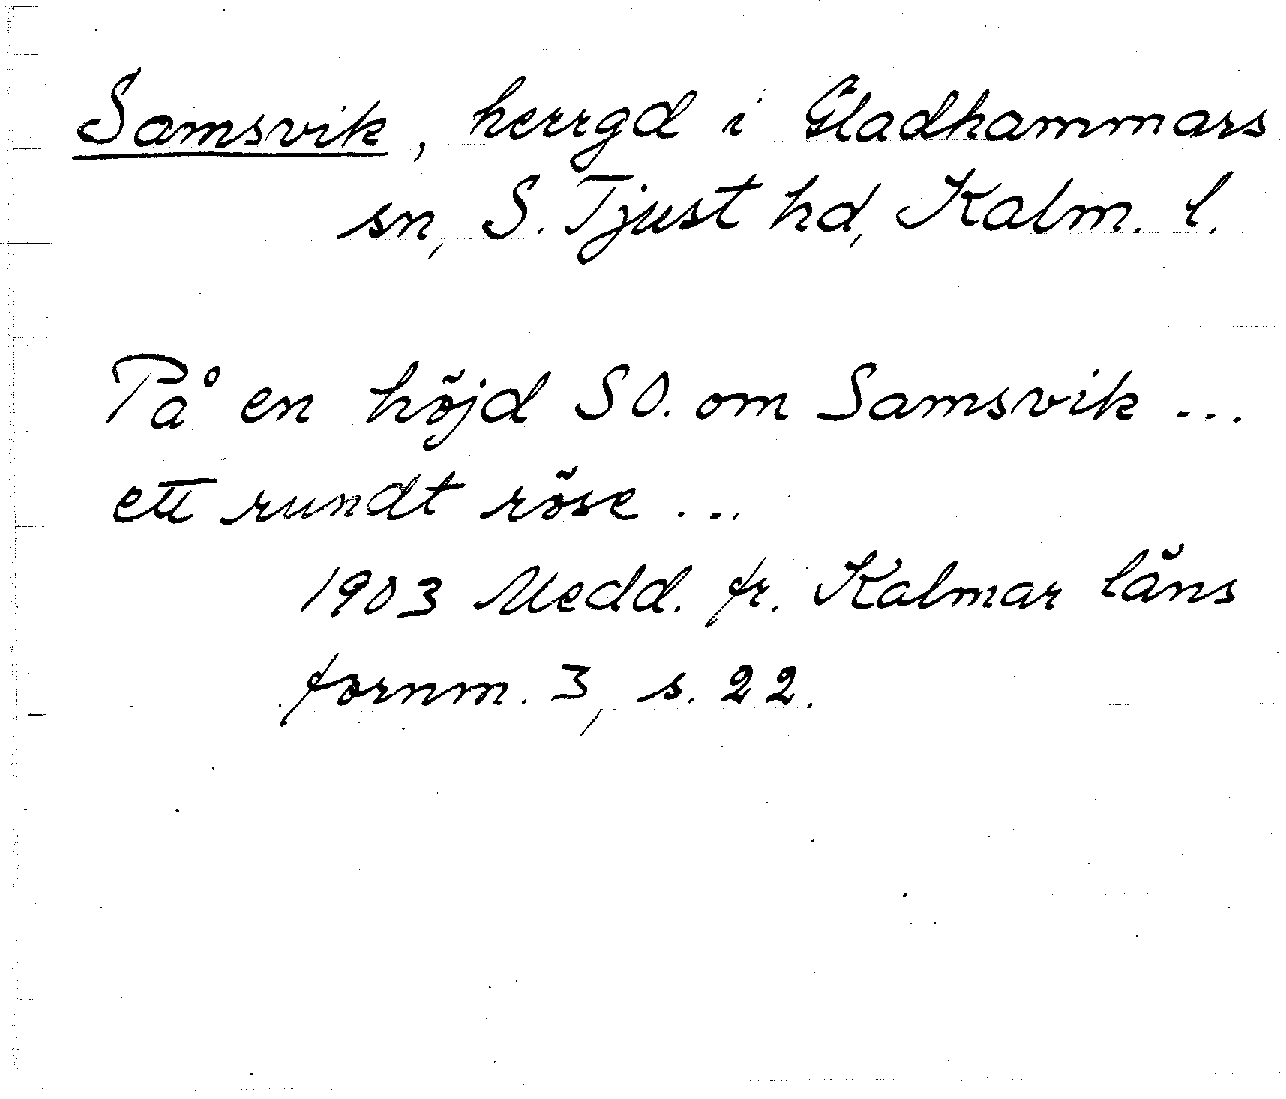 Samsvik, herrgd i Gladhammars
sn, S. Tjust hd, Kalm. l.
På en höjd SO. om Samsvik ...
ett rundt röse ...
1903 Medd. fr. Kalmar läns
fornm. 3, s. 22.